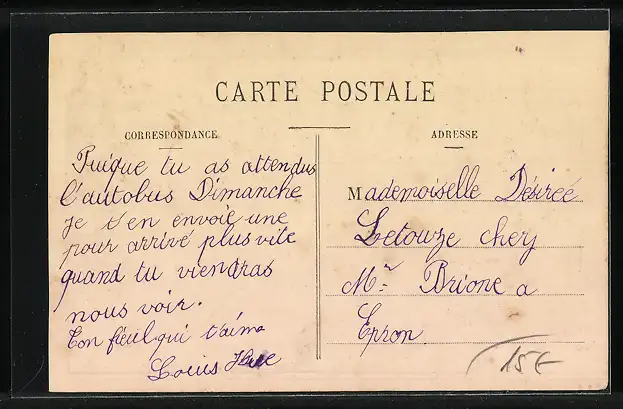 CARTE POSTALE
CORRESPONDANCE
Puique tu as attendus
l'autobus Dimanche
je t'en envoie une
pour arrivé plus vite
quand tu viendras
nous voir.
Ton fieul qui t'aime
Louis Hue
ADRESSE
Mademoiselle Désireé
Letouze chez
Mr Brione a
Epron
15€